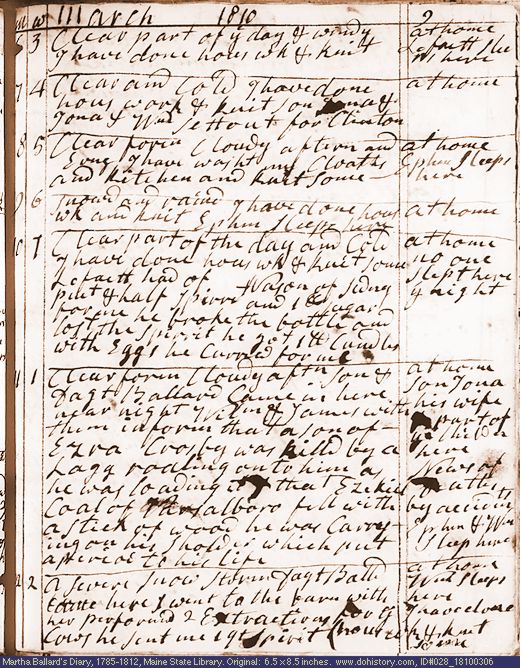 m w March 1810 9
3 Clear part of ye day & windy at home
I have done hous wk & knit
7 4 Clear and Cold I have done at home
hous work & knit Son Jona &
Jona & Wm Sett out for Clinton
8 5 Clear foren Cloudy aftern and at home
I have washt my Cloaths Ephm Sleeps
and kitchen and knit some here
9 6 Snowd and raind I have done hous at home
wk and knit Ephm Sleeps here
10 7 Clear part of the day and Cold at home
I have done hous wk & knit some no one
had of Wason of Sidny slept here
pint & half Spirre and 1 lb Sugar & night
for me he broke the bottle and
lost the Spirit he got 1 lb Candles
with Eggs he Carried for me
11 1 Clear foren Cloudy aftn Son & at home
Dagt Ballard Came in here Son Jona
near night Wm & James with his wife
them inform that a son of part of
Ezra Crosby was killd by a children
Logg roaling onto him as here
he was loading it that Ezekiel News of
of Vassalboro fell with Deaths
a stick of wood he was Carry- by accident
ing on his Sholder which put Ephm & Wm
a period to his life Sleep here
12 2 a severe Snow Storm Dagt Balld at home
here I went to the barn with Wm Sleeps
her performd 2 Extractions for of here
Cows he sent me 1 qt Spirit & knit
Martha Ballard's Diary, 1785-1812, Maine State Library. Original: 6.5 x 8.5 inches. www.dohistory.com, ID#028_18100306